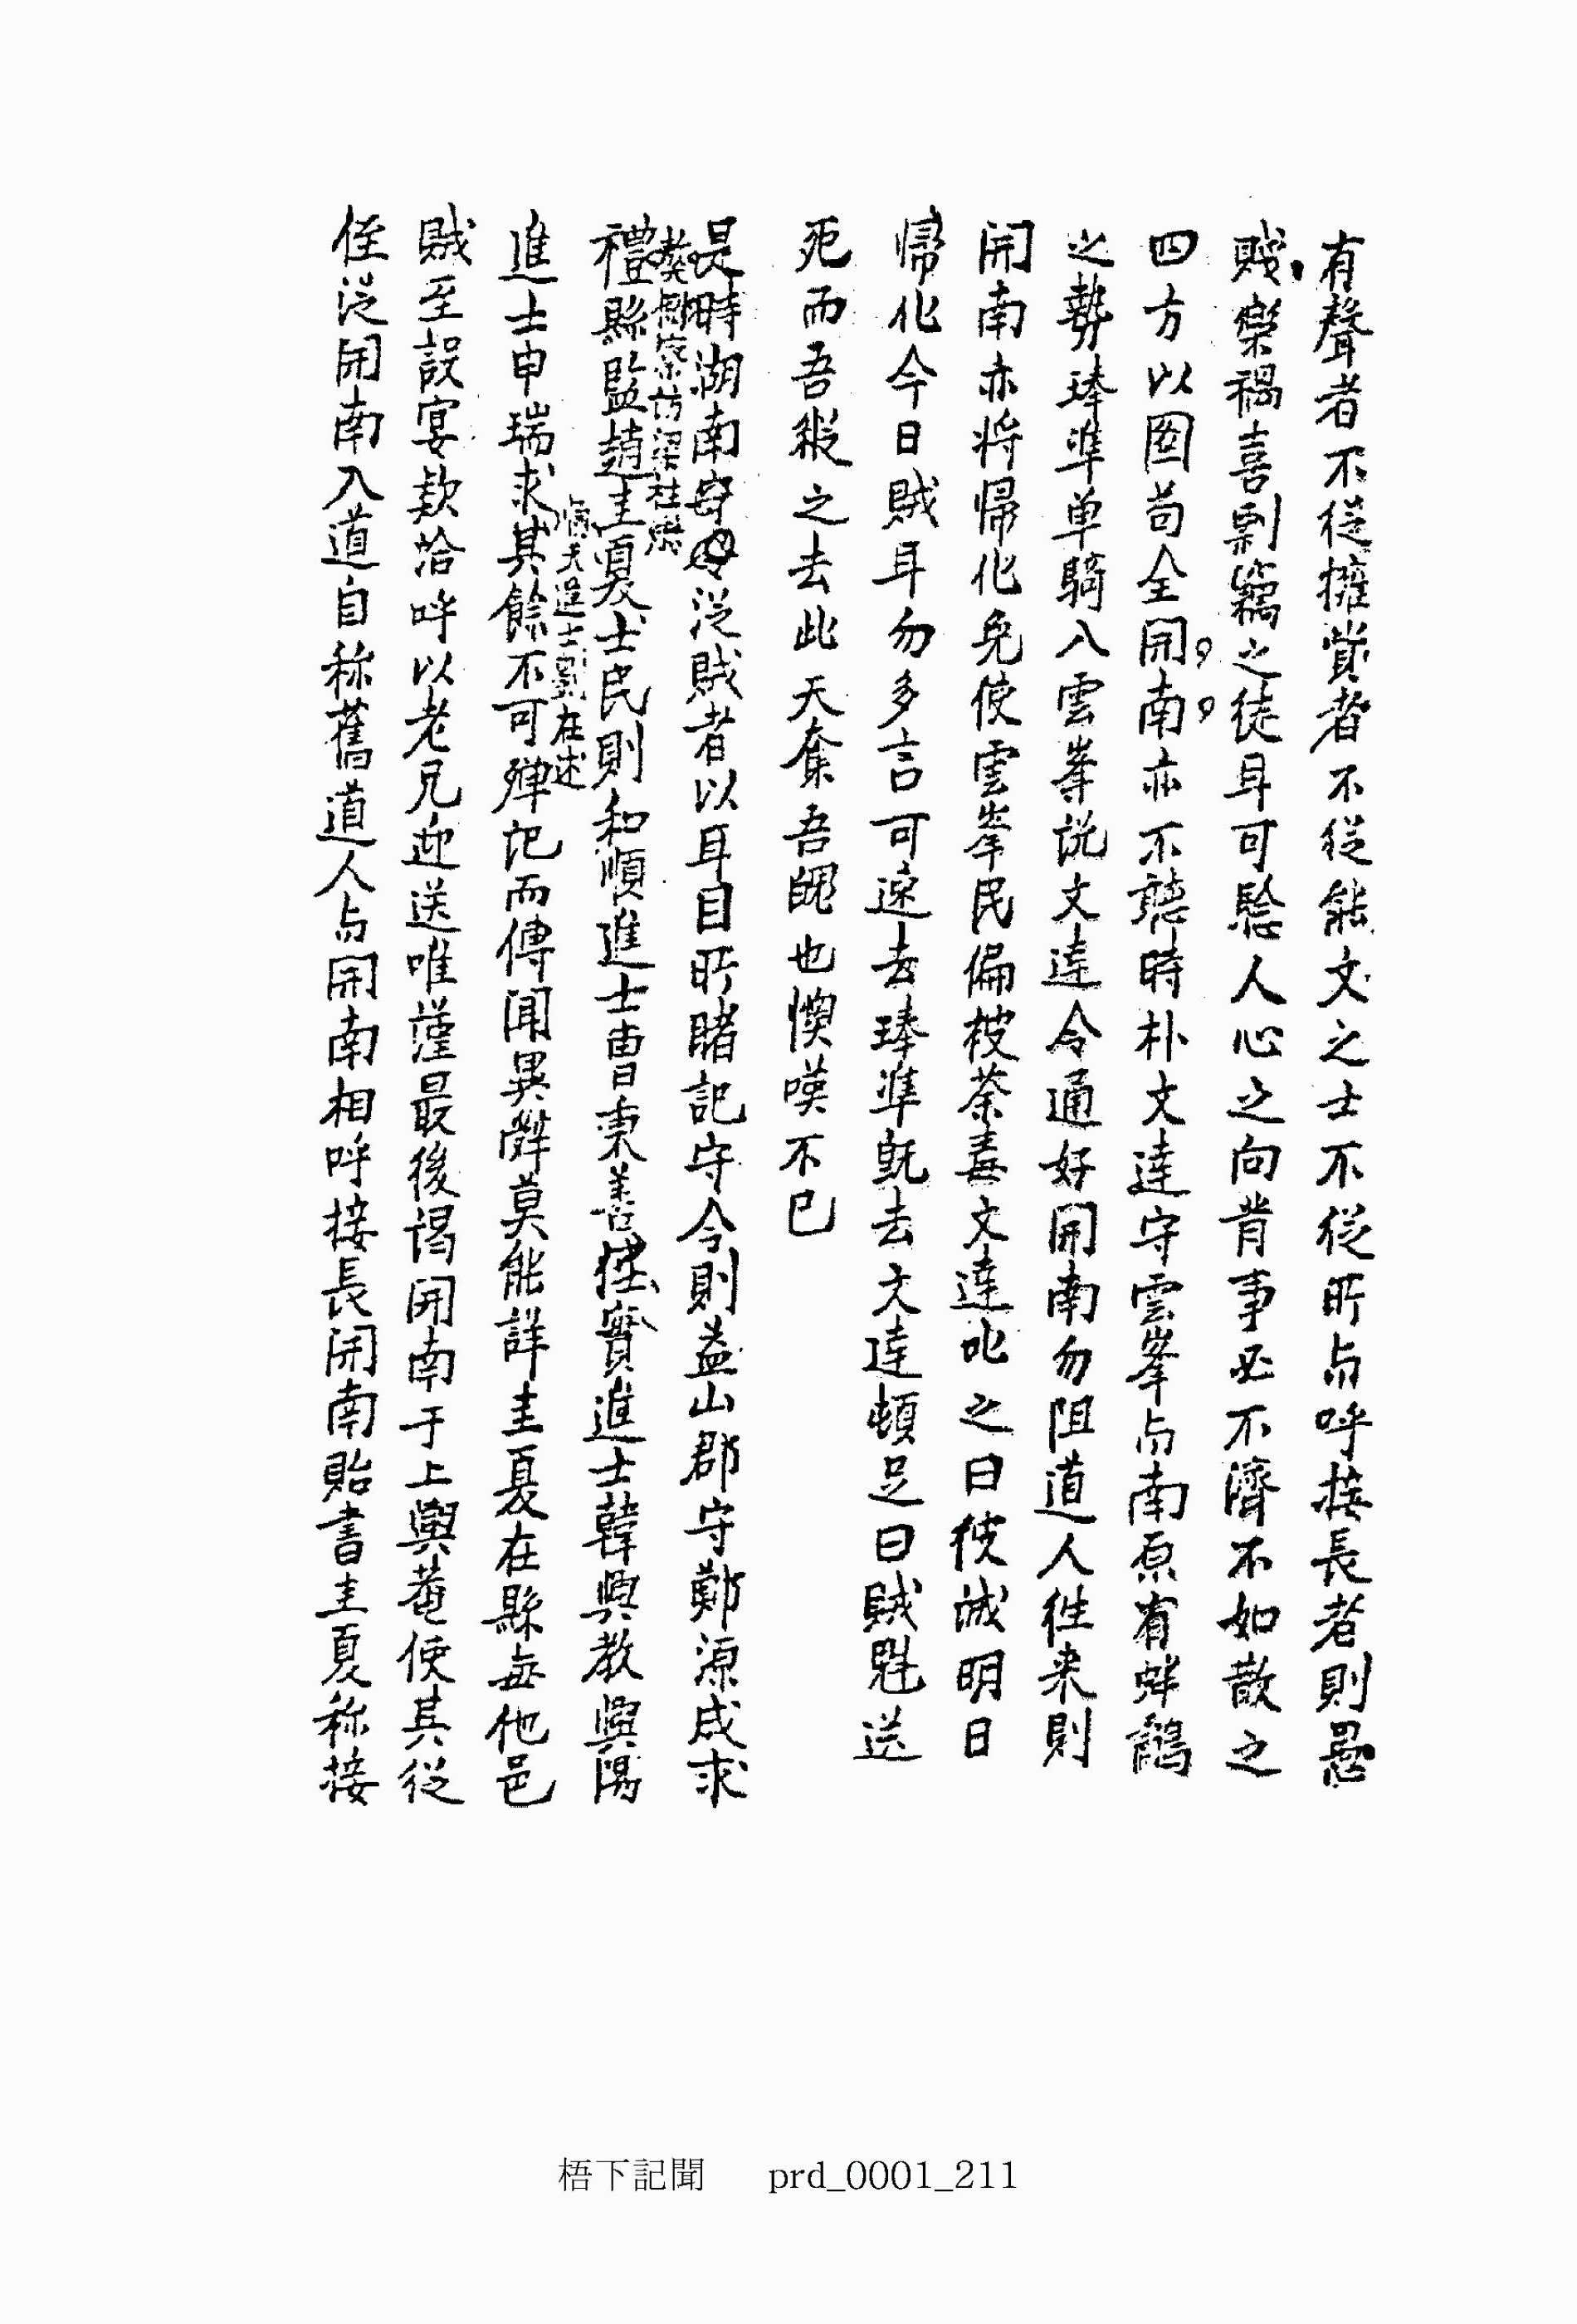 有聲者不從擁貲者不從能文之士不從所与呼接長者則愚
賤樂禍喜剽竊之徒耳可驗人心之向背事必不濟不如散之
四方以圖苟全開南亦不聽時朴文達守雲峯与南原有蚌鷸
之勢琫準单騎入雲峯說文達令通好開南勿阻道人徃来則
開南亦将歸化免使雲峯民偏被荼毒文達叱之曰彼誠明日
歸化今日賊耳勿多言可速去琫準旣去文達頓足曰賊魁送
死而吾縱之去此天奪吾魄也懊嘆不已
是時湖南守令從賊者以耳目所睹記守令則益山郡守鄭源成求
禮縣監趙圭夏士民則和順進士曹秉善任實進士韓興敎興陽
進士申瑞求其餘不可殫記而傳聞異辭莫能詳圭夏在縣每他邑
賊至設宴款洽呼以老兄迎送唯謹最後謁開南于上輿菴使其從
侄從開南入道自称舊道人与開南相呼接長開南貽書圭夏称接